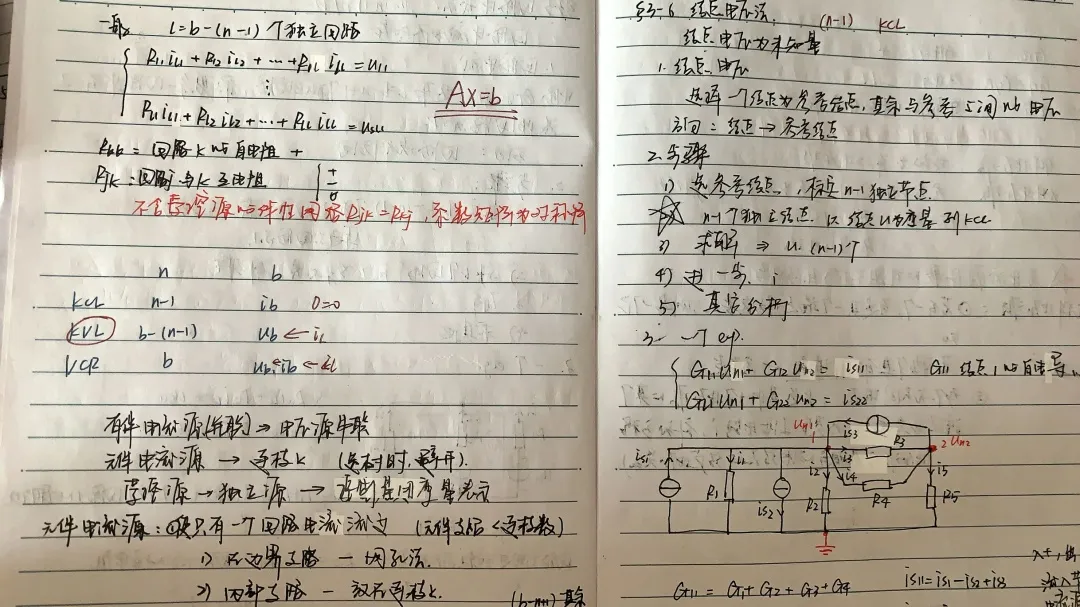 一般: l=b-(n-1) 个独立回路
R11 il1 + R12 il2 + … + R1l ill = us11
⋮
Rl1 il1 + Rl2 il2 + … + Rll ill = usll
AX=b
Rkk = 回路k的自电阻 +
Rjk: 回路j与k互电阻 + - 0
不含受控源的线性网络Rjk=Rkj 系数矩阵为对称阵
n b
KCL n-1 ib 0=0
KVL b-(n-1) ub ← il
VCR b ub ib ← il
有伴电流源(并联) → 电压源串联
无伴电流源 → 连枝k (选树时, 断开).
受控源 → 独立源 →
无伴电流源: 只有一个回路电流流过 (无伴支路<连枝数)
1) 在边界支路 — 网孔法.
2) 内部支路 — 放在连枝k.
§3-6 结点电压法. (n-1) KCL
结点电压为未知量
1. 结点电压
选择一个结点为参考结点, 其余与参考之间的电压
方向: 结点 → 参考结点
2. 步骤
1) 选参考结点, 标定n-1独立节点.
n-1个独立结点, 以结点u为变量列KCL
3) 求解 ⇒ u. (n-1)个
4) 进一步. i
5) 其它分析
3. 一个eg.
G11 un1 + G12 un2 = is11 G11 结点1的自电导.
G21 un1 + G22 un2 = is22
un1 1 is3 R3 2 un2
is1 i1 i2 i3 i4 i5
R1 is2 R2 R4 R5
G11 = G1 + G2 + G3 + G4 is11 = is1 - is2 + is3